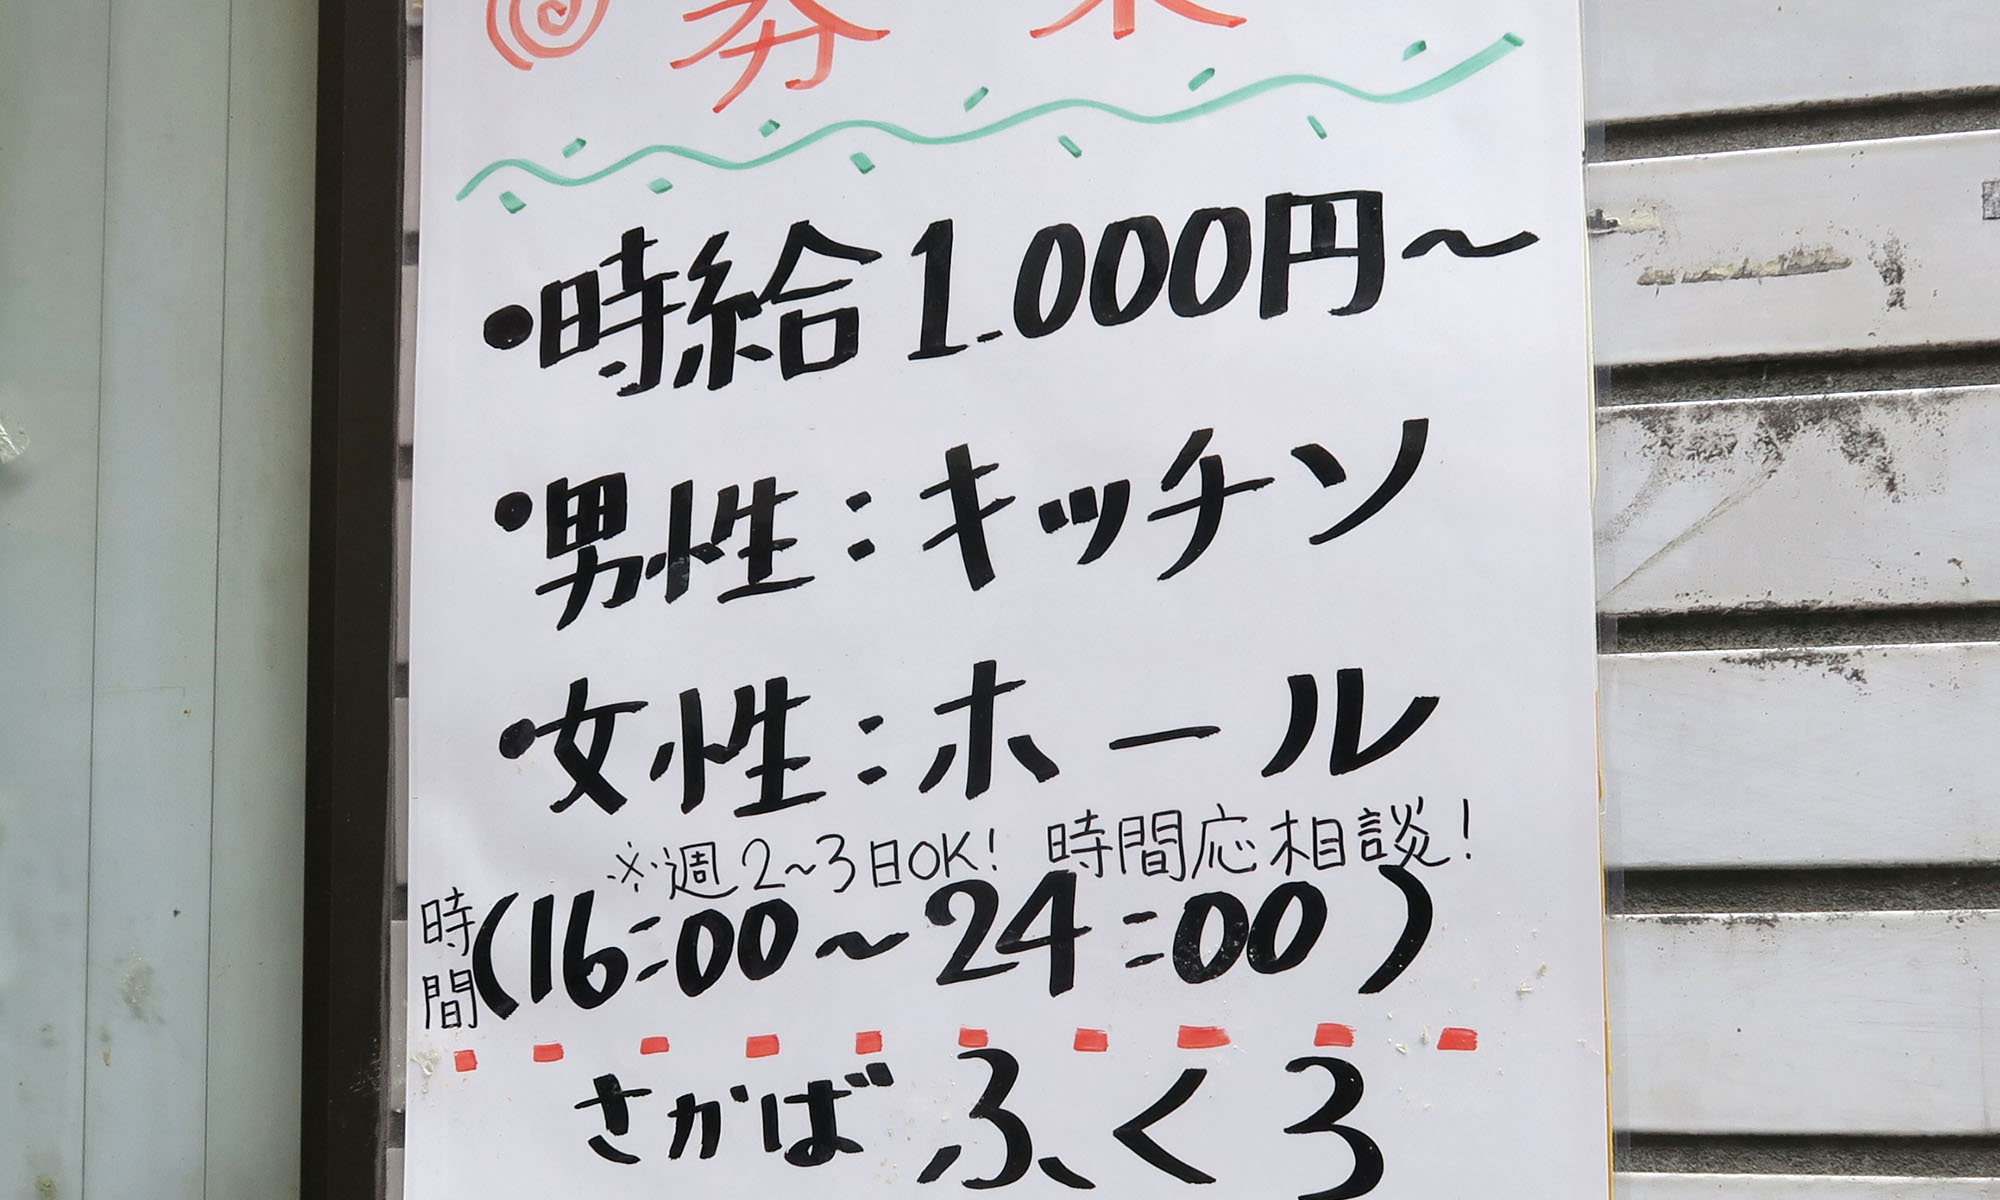 ・時給1.000円～
・男性：キッチン
・女性：ホール
※週2～3日OK! 時間応相談!
時間(16:00～24:00)
さかば ふくろ